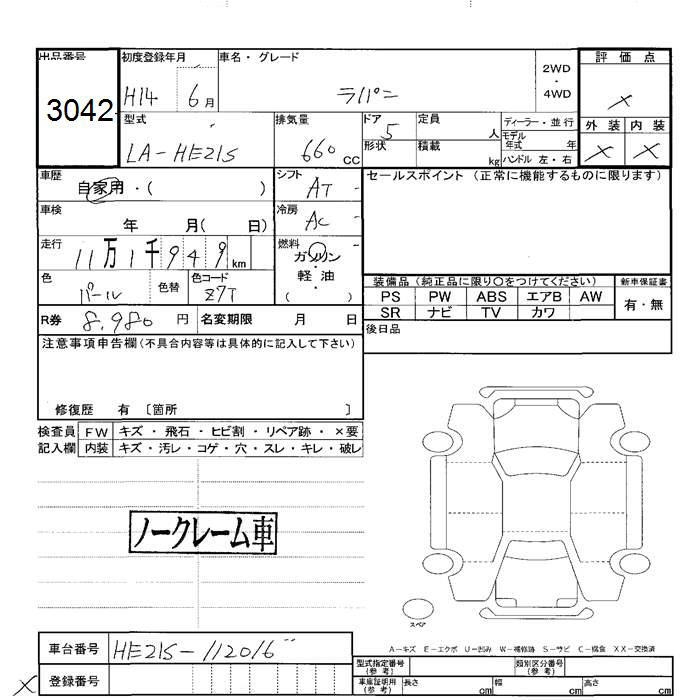 出品番号
3042
初度登録年月
H14 6月
車名・グレード
ラパン
2WD
・
4WD
評価点
×
外装 内装
× ×
型式
LA-HE21S
排気量
660 CC
ドア
5
形状
定員
人
積載
kg
ディーラー・並行
モデル
年式 年
ハンドル 左・右
車歴
自家用・( )
シフト
AT
車検
年 月( 日)
冷房
AC
走行
11万1千949km
燃料
ガソリン
・
軽・油
( )
色
パール
色替
色コード
Z7T
R券 8,980円
名変期限 月 日
セールスポイント (正常に機能するものに限ります)
装備品(純正品に限り〇をつけてください)
新車保証書
有・無
PS PW ABS エアB AW
SR ナビ TV カワ
後日品
注意事項申告欄(不具合内容等は具体的に記入して下さい)
修復歴 有 〔箇所 〕
検査員 FW キズ・飛石・ヒビ割・リペア跡・×要
記入欄 内装 キズ・汚レ・コゲ・穴・スレ・キレ・破レ
ノークレーム車
スペア
A-キズ E-エクボ U-凹み W-補修跡 S-サビ C-腐食 XX-交換済
車台番号 HE21S-112016
× 登録番号
型式指定番号
(参考)
類別区分番号
(参考)
車庫証明用
(参考)
長さ cm 幅 cm 高さ cm